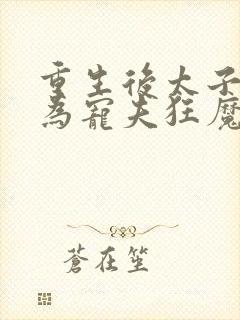 重生後太子
為寵夫狂魔
蒼在笙